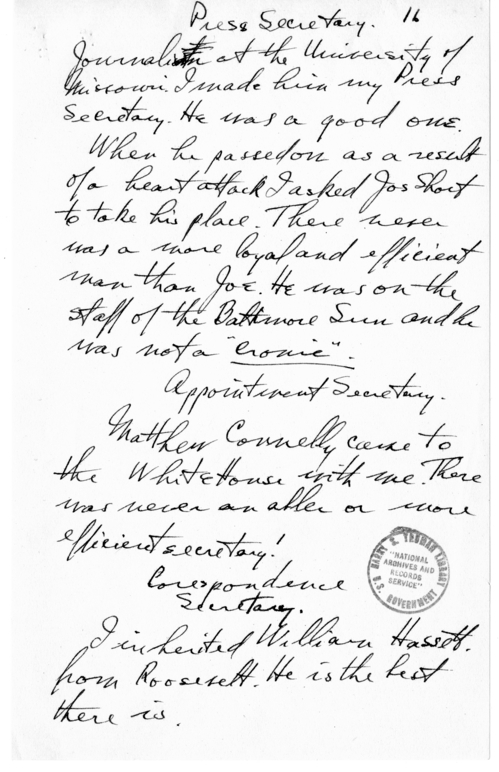 Press Secretary. 16
Journalism at the University of
Missouri. I made him my Press
Secretary. He was a good one.
When he passed on as a result
of a heart attack I asked Jos Short
to take his place. There never
was a more loyal and efficient
man than Joe. He was on the
staff of the Baltimore Sun and he
was not a "cronie".
Appointment Secretary.
Matthew Connelly came to
the White House with me. There
was never an abler or more
efficient secretary!
Corespondence
Secretary.
I inherited William Hassett.
from Roosevelt. He is the best
there is.
HARRY S. TRUMAN LIBRARY
"NATIONAL
ARCHIVES AND
RECORDS
SERVICE"
U.S. GOVERNMENT